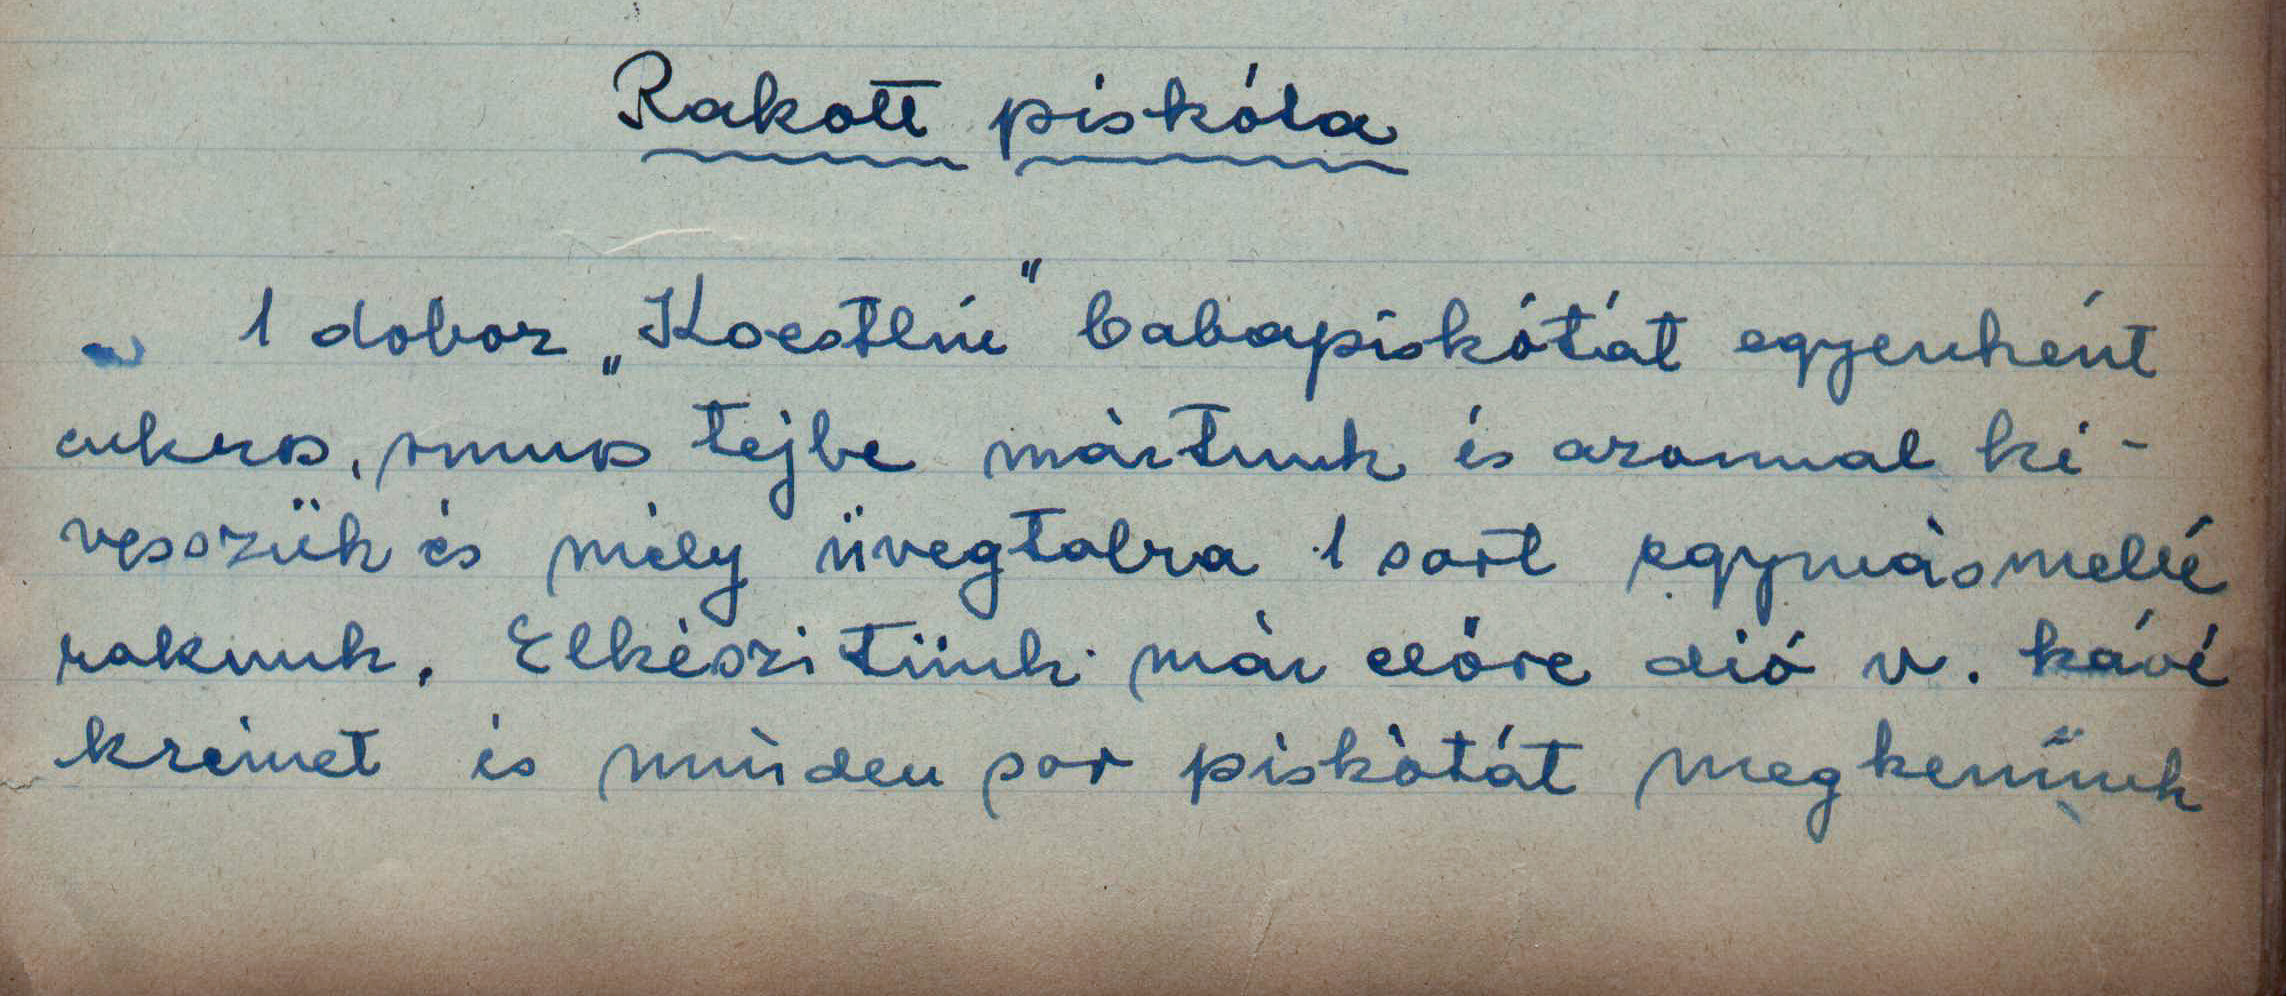 Rakott piskóta
1 doboz „Koestlin" babapiskótát egyenként
cukros, rumos tejbe mártunk és azonnal ki-
vesszük és mély üvegtálra 1 sort egymásmellé
rakunk. Elkészitünk már előre dió v. kávé
krémet és minden sor piskótát megkenünk